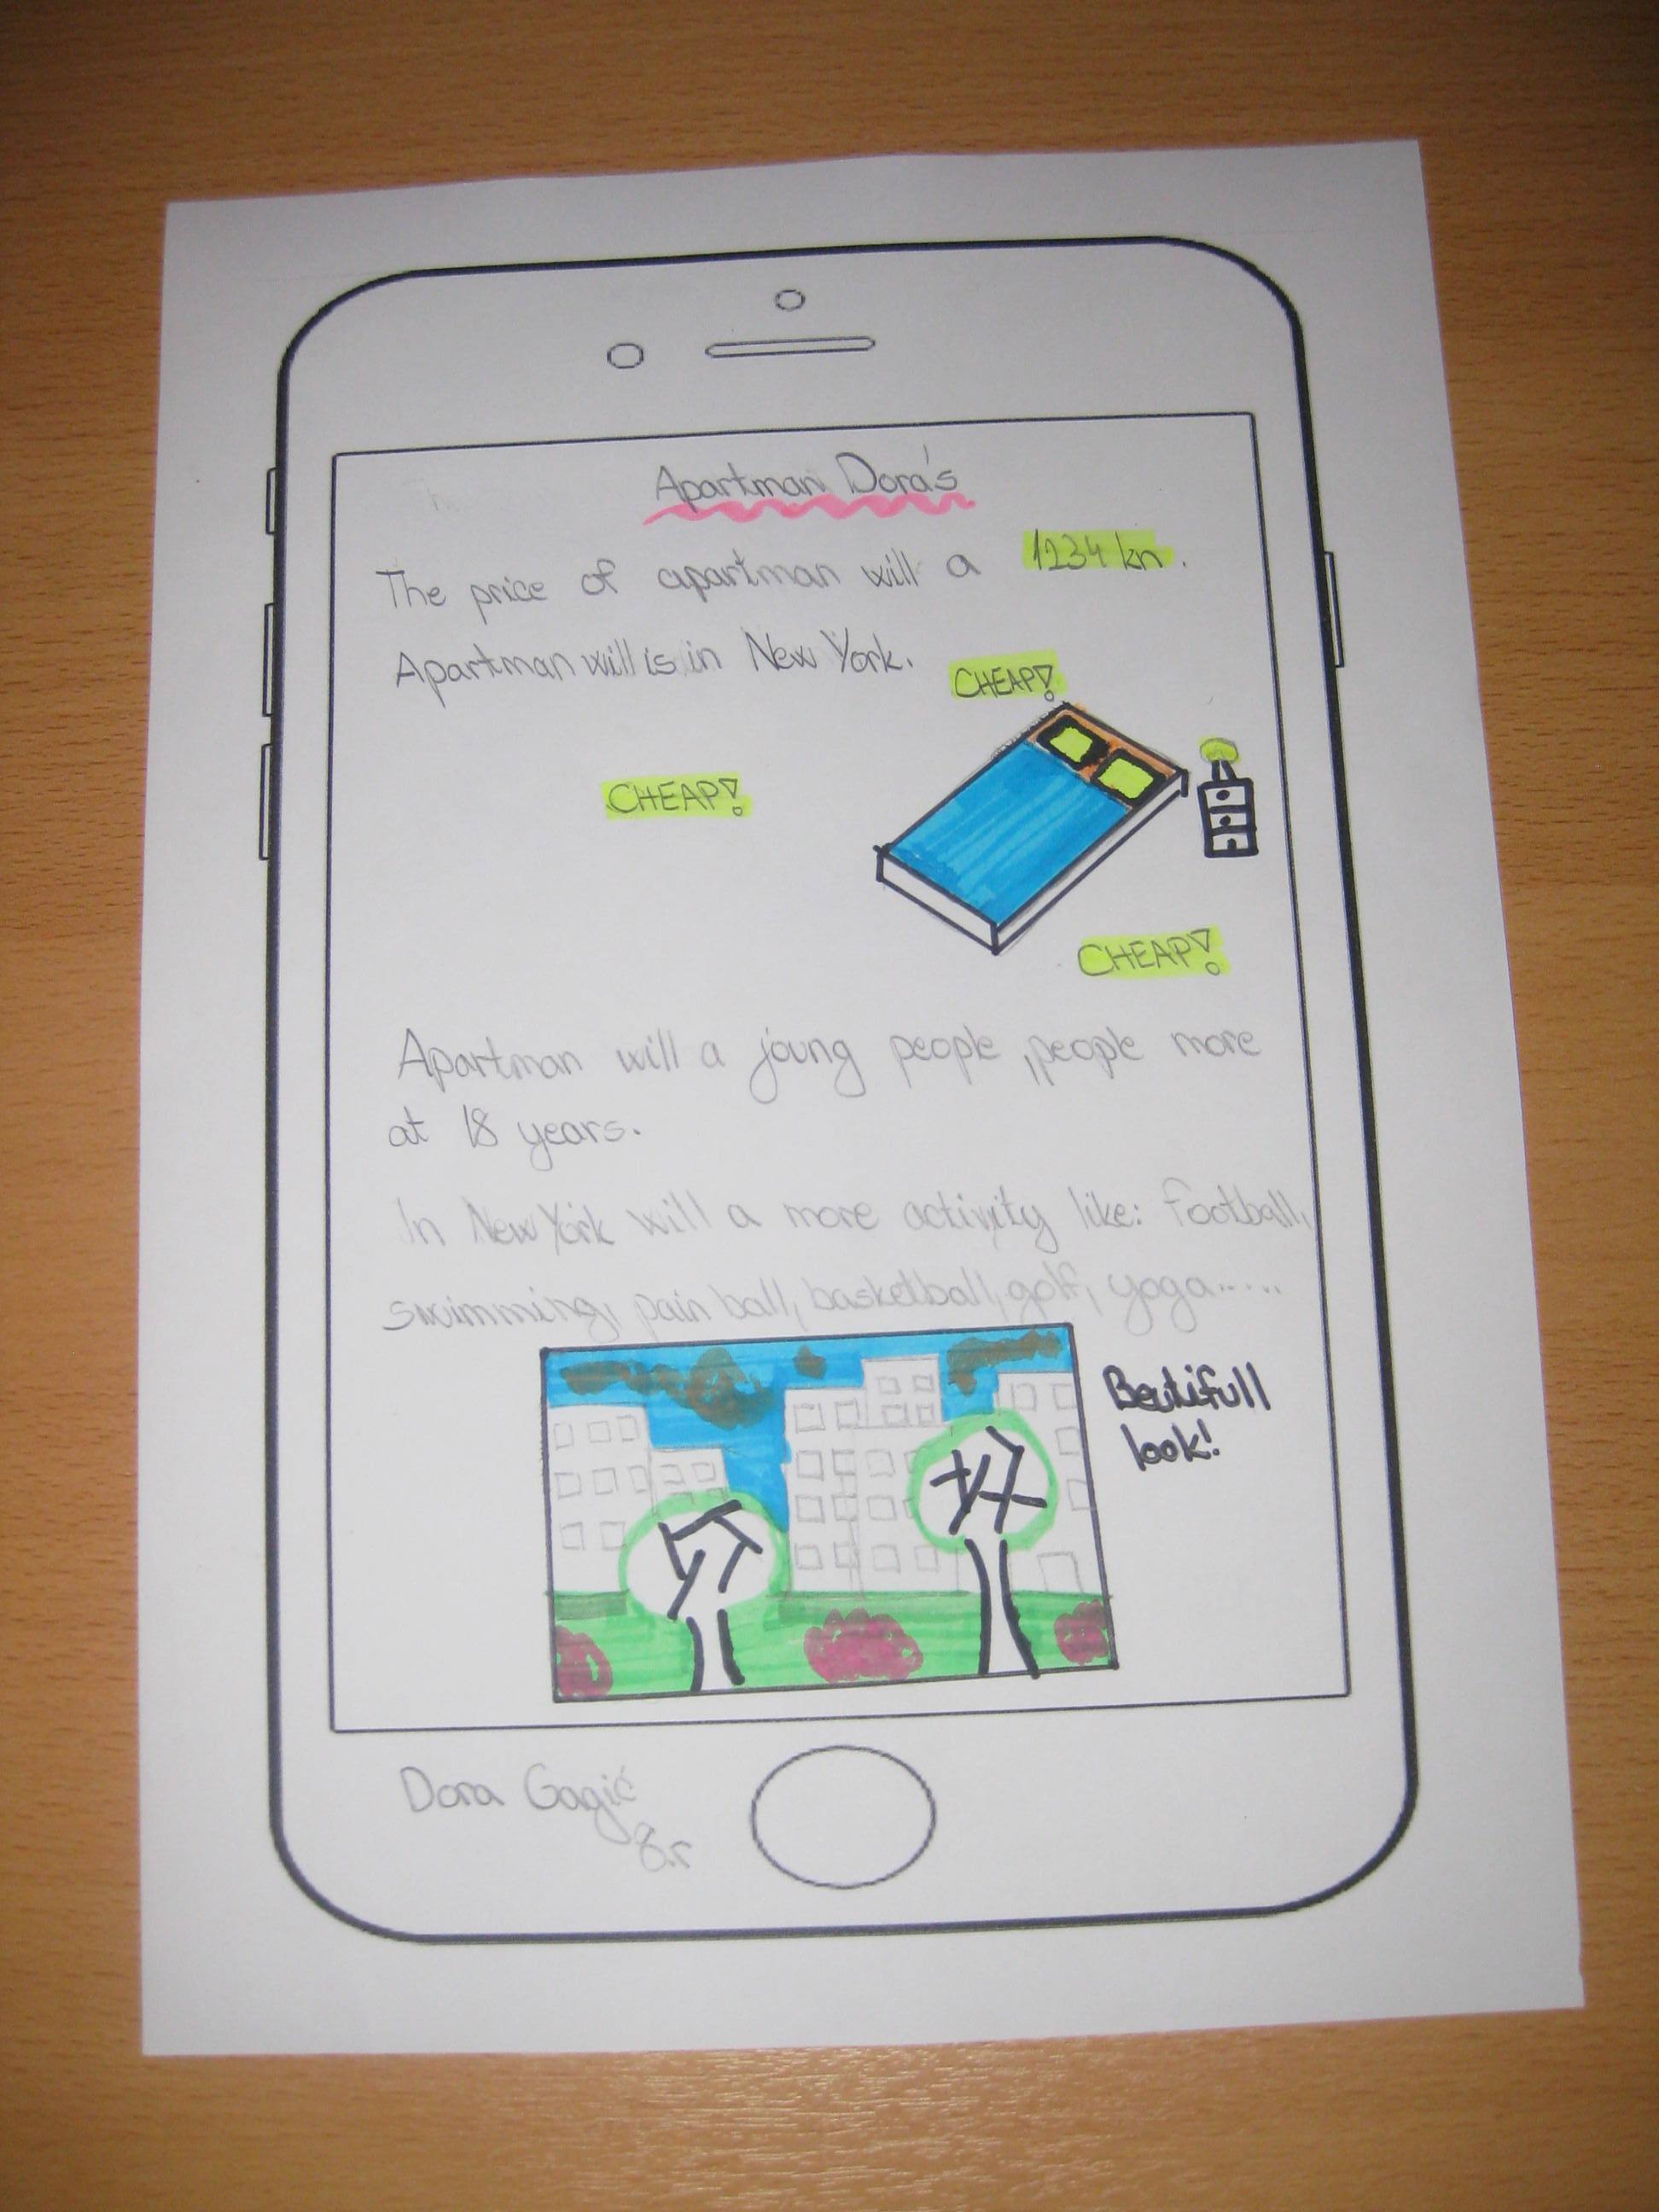 Apartman Dora's
The price of apartman will a 1234 kn.
Apartman will is in New York.
CHEAP!
CHEAP!
CHEAP!
Apartman will a joung people, people more
at 18 years.
In New York will a more activity like: football,
swimming, pain ball, basketball, golf, yoga.....
Beutifull
look!
Dora Gagić
8.r